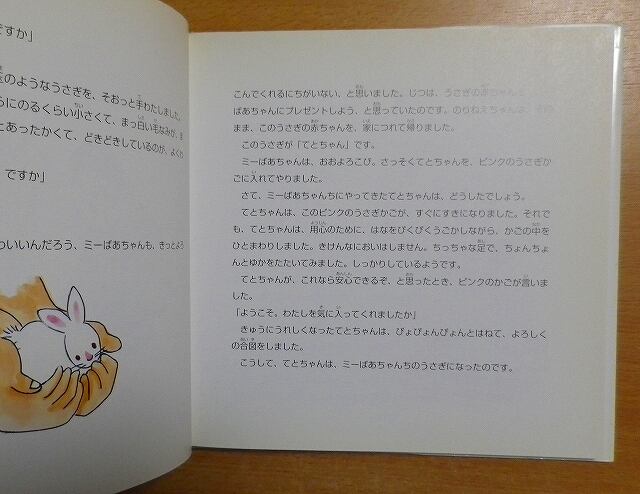 ですか」
のようなうさぎを、そおっと手わたしました。
にのるくらい小さくて、まっ白い毛なみが、ま
とあったかくて、どきどきしているのが、よくわ
ですか」
わいいんだろう、ミーばあちゃんも、きっとよろ
こんでくれるにちがいない、と思いました。じつは、うさぎの赤ちゃん
ばあちゃんにプレゼントしよう、と思っていたのです。のりねえちゃんは、その
まま、このうさぎの赤ちゃんを、家につれて帰りました。
このうさぎが「てとちゃん」です。
ミーばあちゃんは、おおよろこび。さっそくてとちゃんを、ピンクのうさぎか
ごに入れてやりました。
さて、ミーばあちゃんちにやってきたてとちゃんは、どうしたでしょう。
てとちゃんは、このピンクのうさぎかごが、すぐにすきになりました。それで
も、てとちゃんは、用心のために、はなをぴくぴくうごかしながら、かごの中を
ひとまわりしました。きけんなにおいはしません。ちっちゃな足で、ちょんちょ
んとゆかをたたいてみました。しっかりしているようです。
てとちゃんが、これなら安心できるぞ、と思ったとき、ピンクのかごが言いま
した。
「ようこそ。わたしを気に入ってくれましたか」
きゅうにうれしくなったてとちゃんは、ぴょぴょんぴょんとはねて、よろしく
の合図をしました。
こうして、てとちゃんは、ミーばあちゃんちのうさぎになったのです。